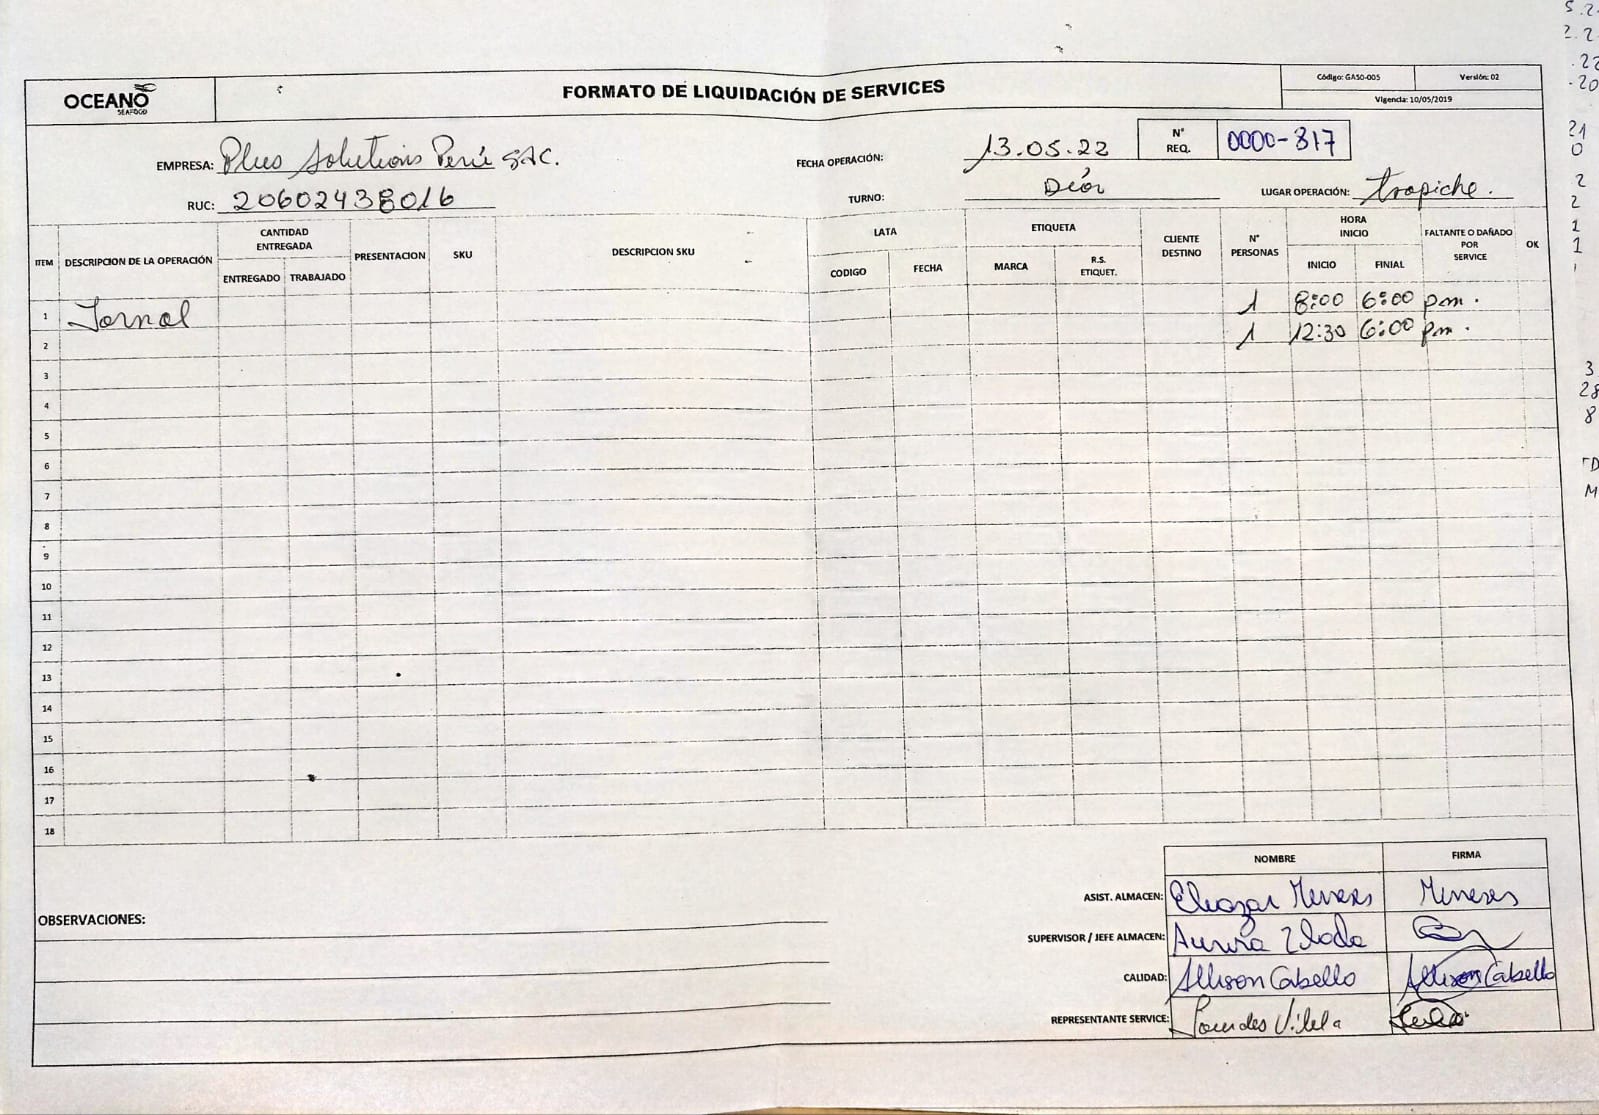 OCEANO
SEAFOOD
FORMATO DE LIQUIDACIÓN DE SERVICES
Código: GASO-005
Versión: 02
Vigencia: 10/05/2019
EMPRESA: Plus Solutions Perú SAC.
FECHA OPERACIÓN: 13.05.22
N° REQ. 0000-317
RUC: 20602438016
TURNO: Día
LUGAR OPERACIÓN: trapiche.
ITEM
DESCRIPCION DE LA OPERACIÓN
CANTIDAD ENTREGADA
ENTREGADO TRABAJADO
PRESENTACION
SKU
DESCRIPCION SKU
LATA
CODIGO FECHA
ETIQUETA
MARCA
R.S. ETIQUET.
CLIENTE DESTINO
N° PERSONAS
HORA INICIO
INICIO FINIAL
FALTANTE O DAÑADO POR SERVICE
OK
1 Jornal 1 8:00 6:00 pm.
2 1 12:30 6:00 pm.
3
4
5
6
7
8
9
10
11
12
13
14
15
16
17
18
NOMBRE FIRMA
ASIST. ALMACEN: Eleazar Meneses Meneses
SUPERVISOR / JEFE ALMACEN: Aurora
CALIDAD: Allison Cabello Allison Cabello
REPRESENTANTE SERVICE: Lourdes Vilela
OBSERVACIONES: